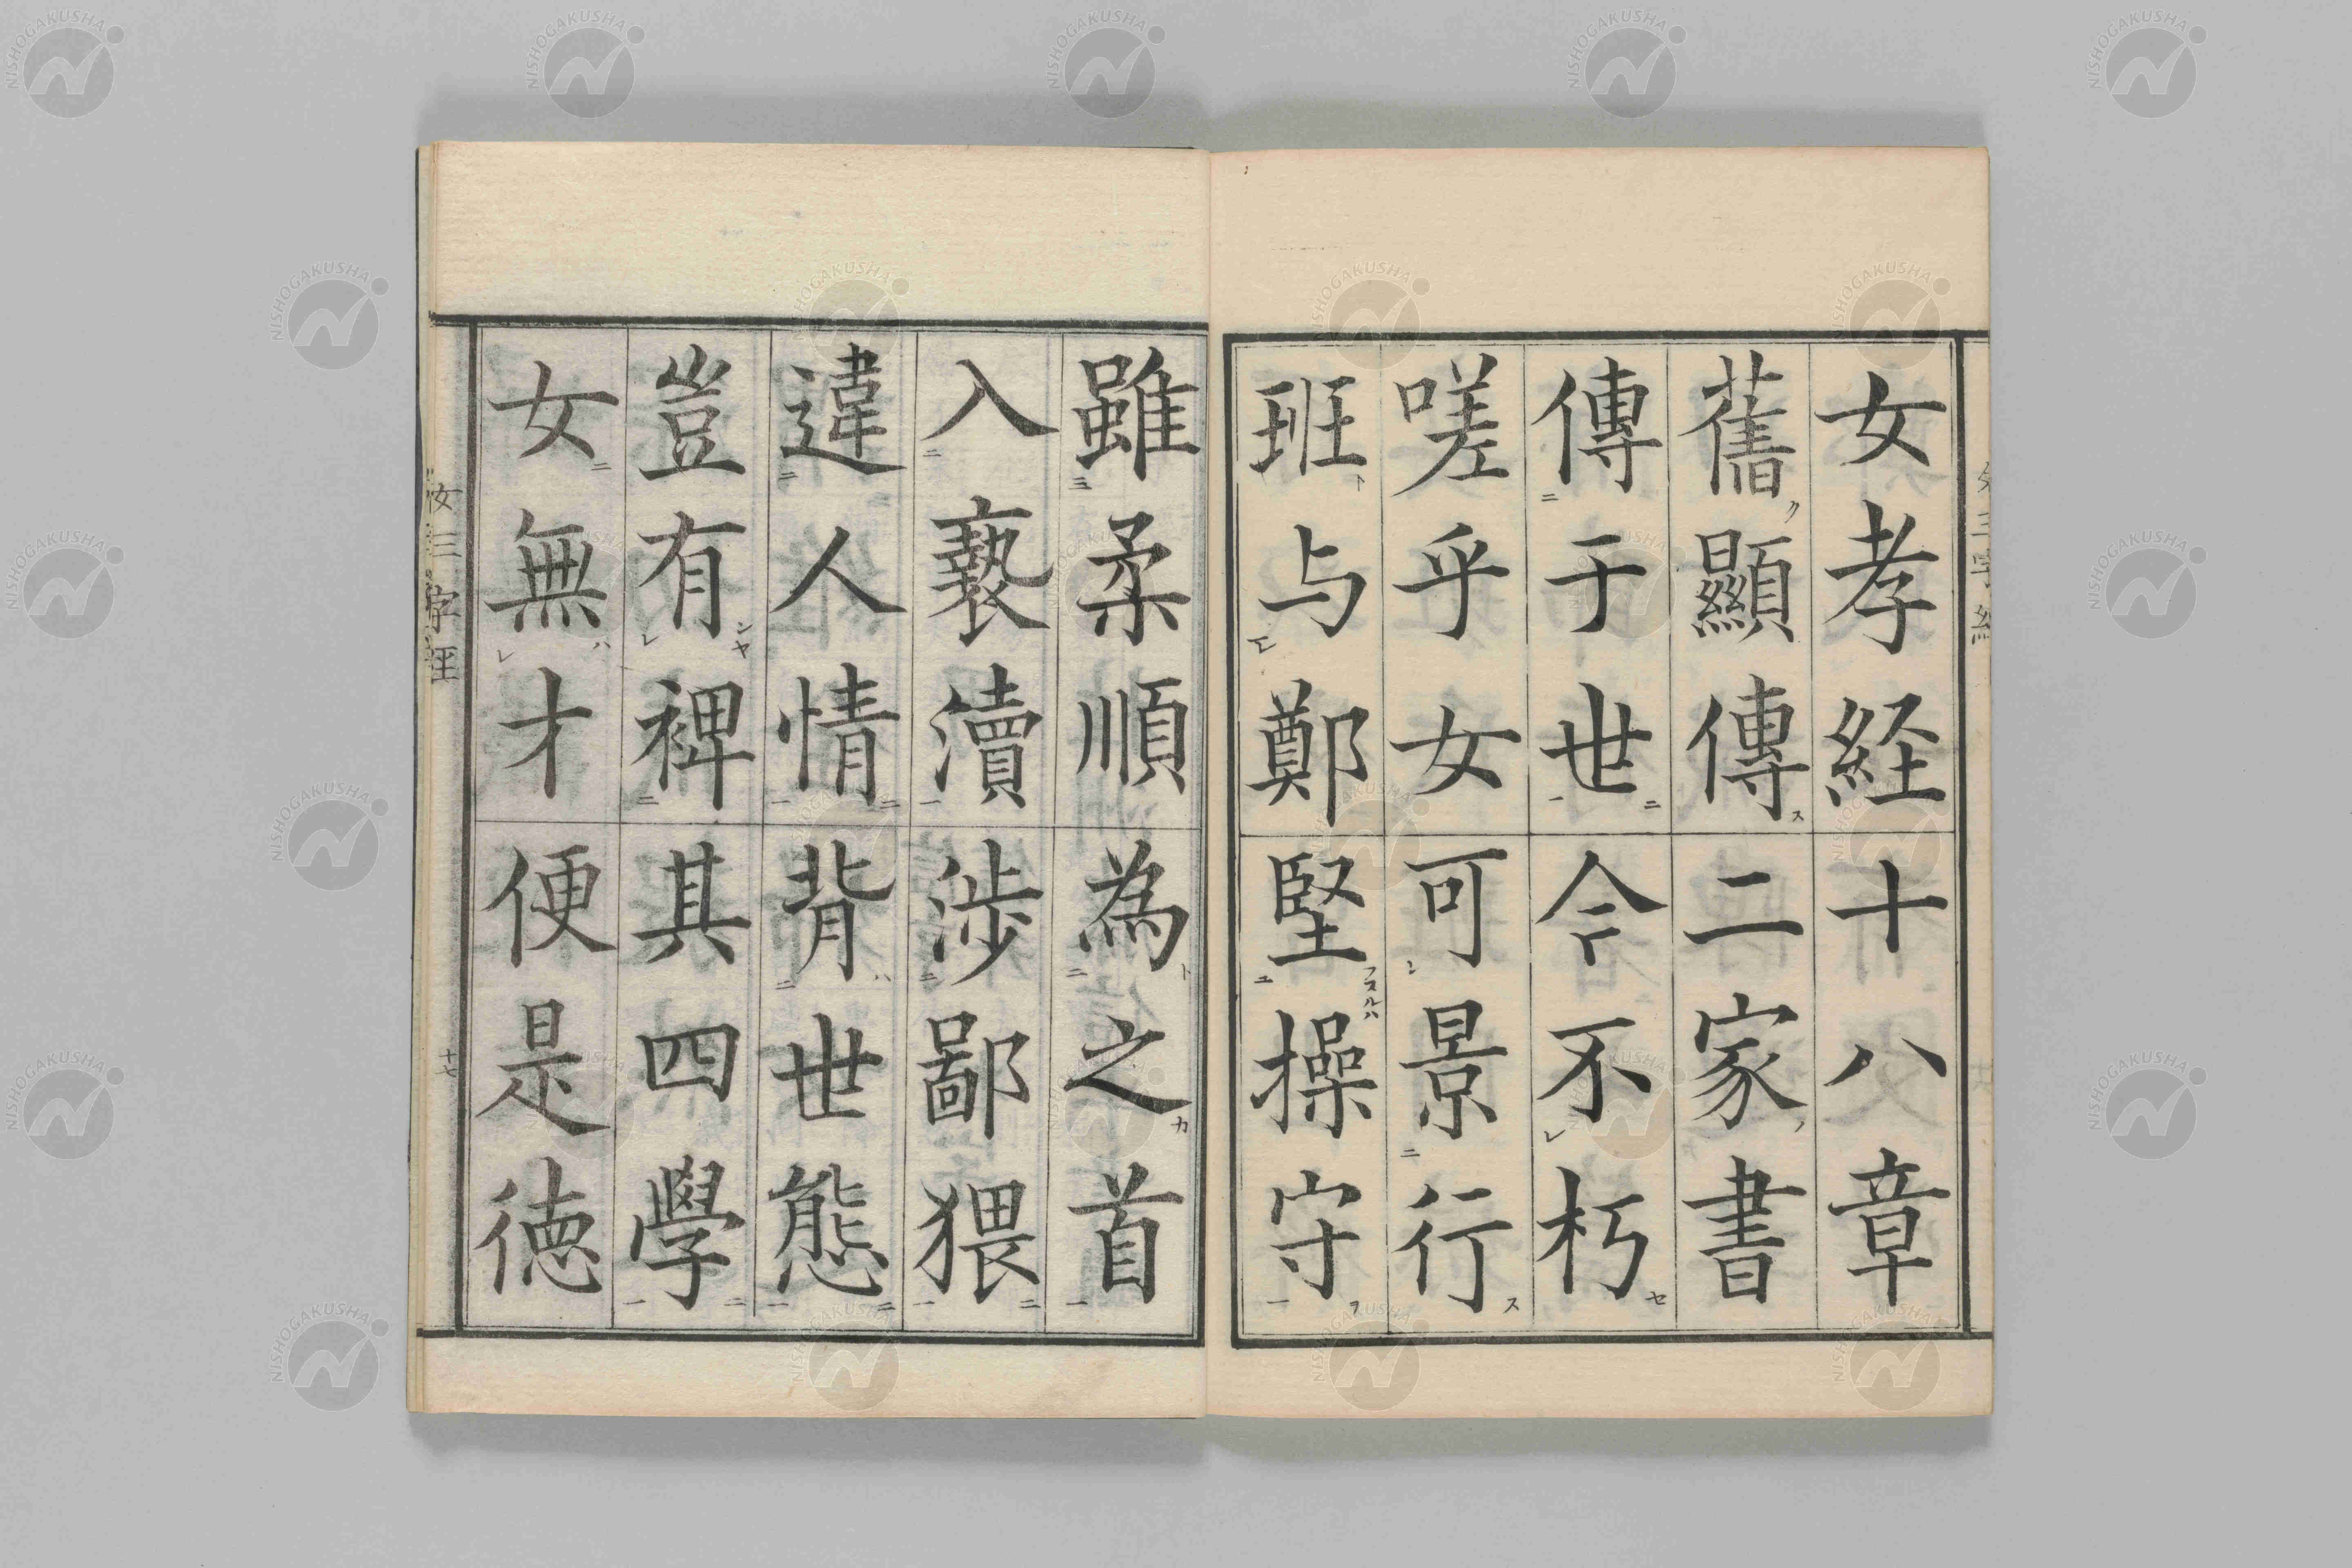 女孝経十八章
舊顯傳二家書
傳于世今不朽
嗟乎女可景行
班与鄭堅操守
雖柔順為之首
入褻瀆涉鄙猥
違人情背世態
豈有裨其四學
女無才便是徳
女三字経
十七
NISHOGAKUSHA